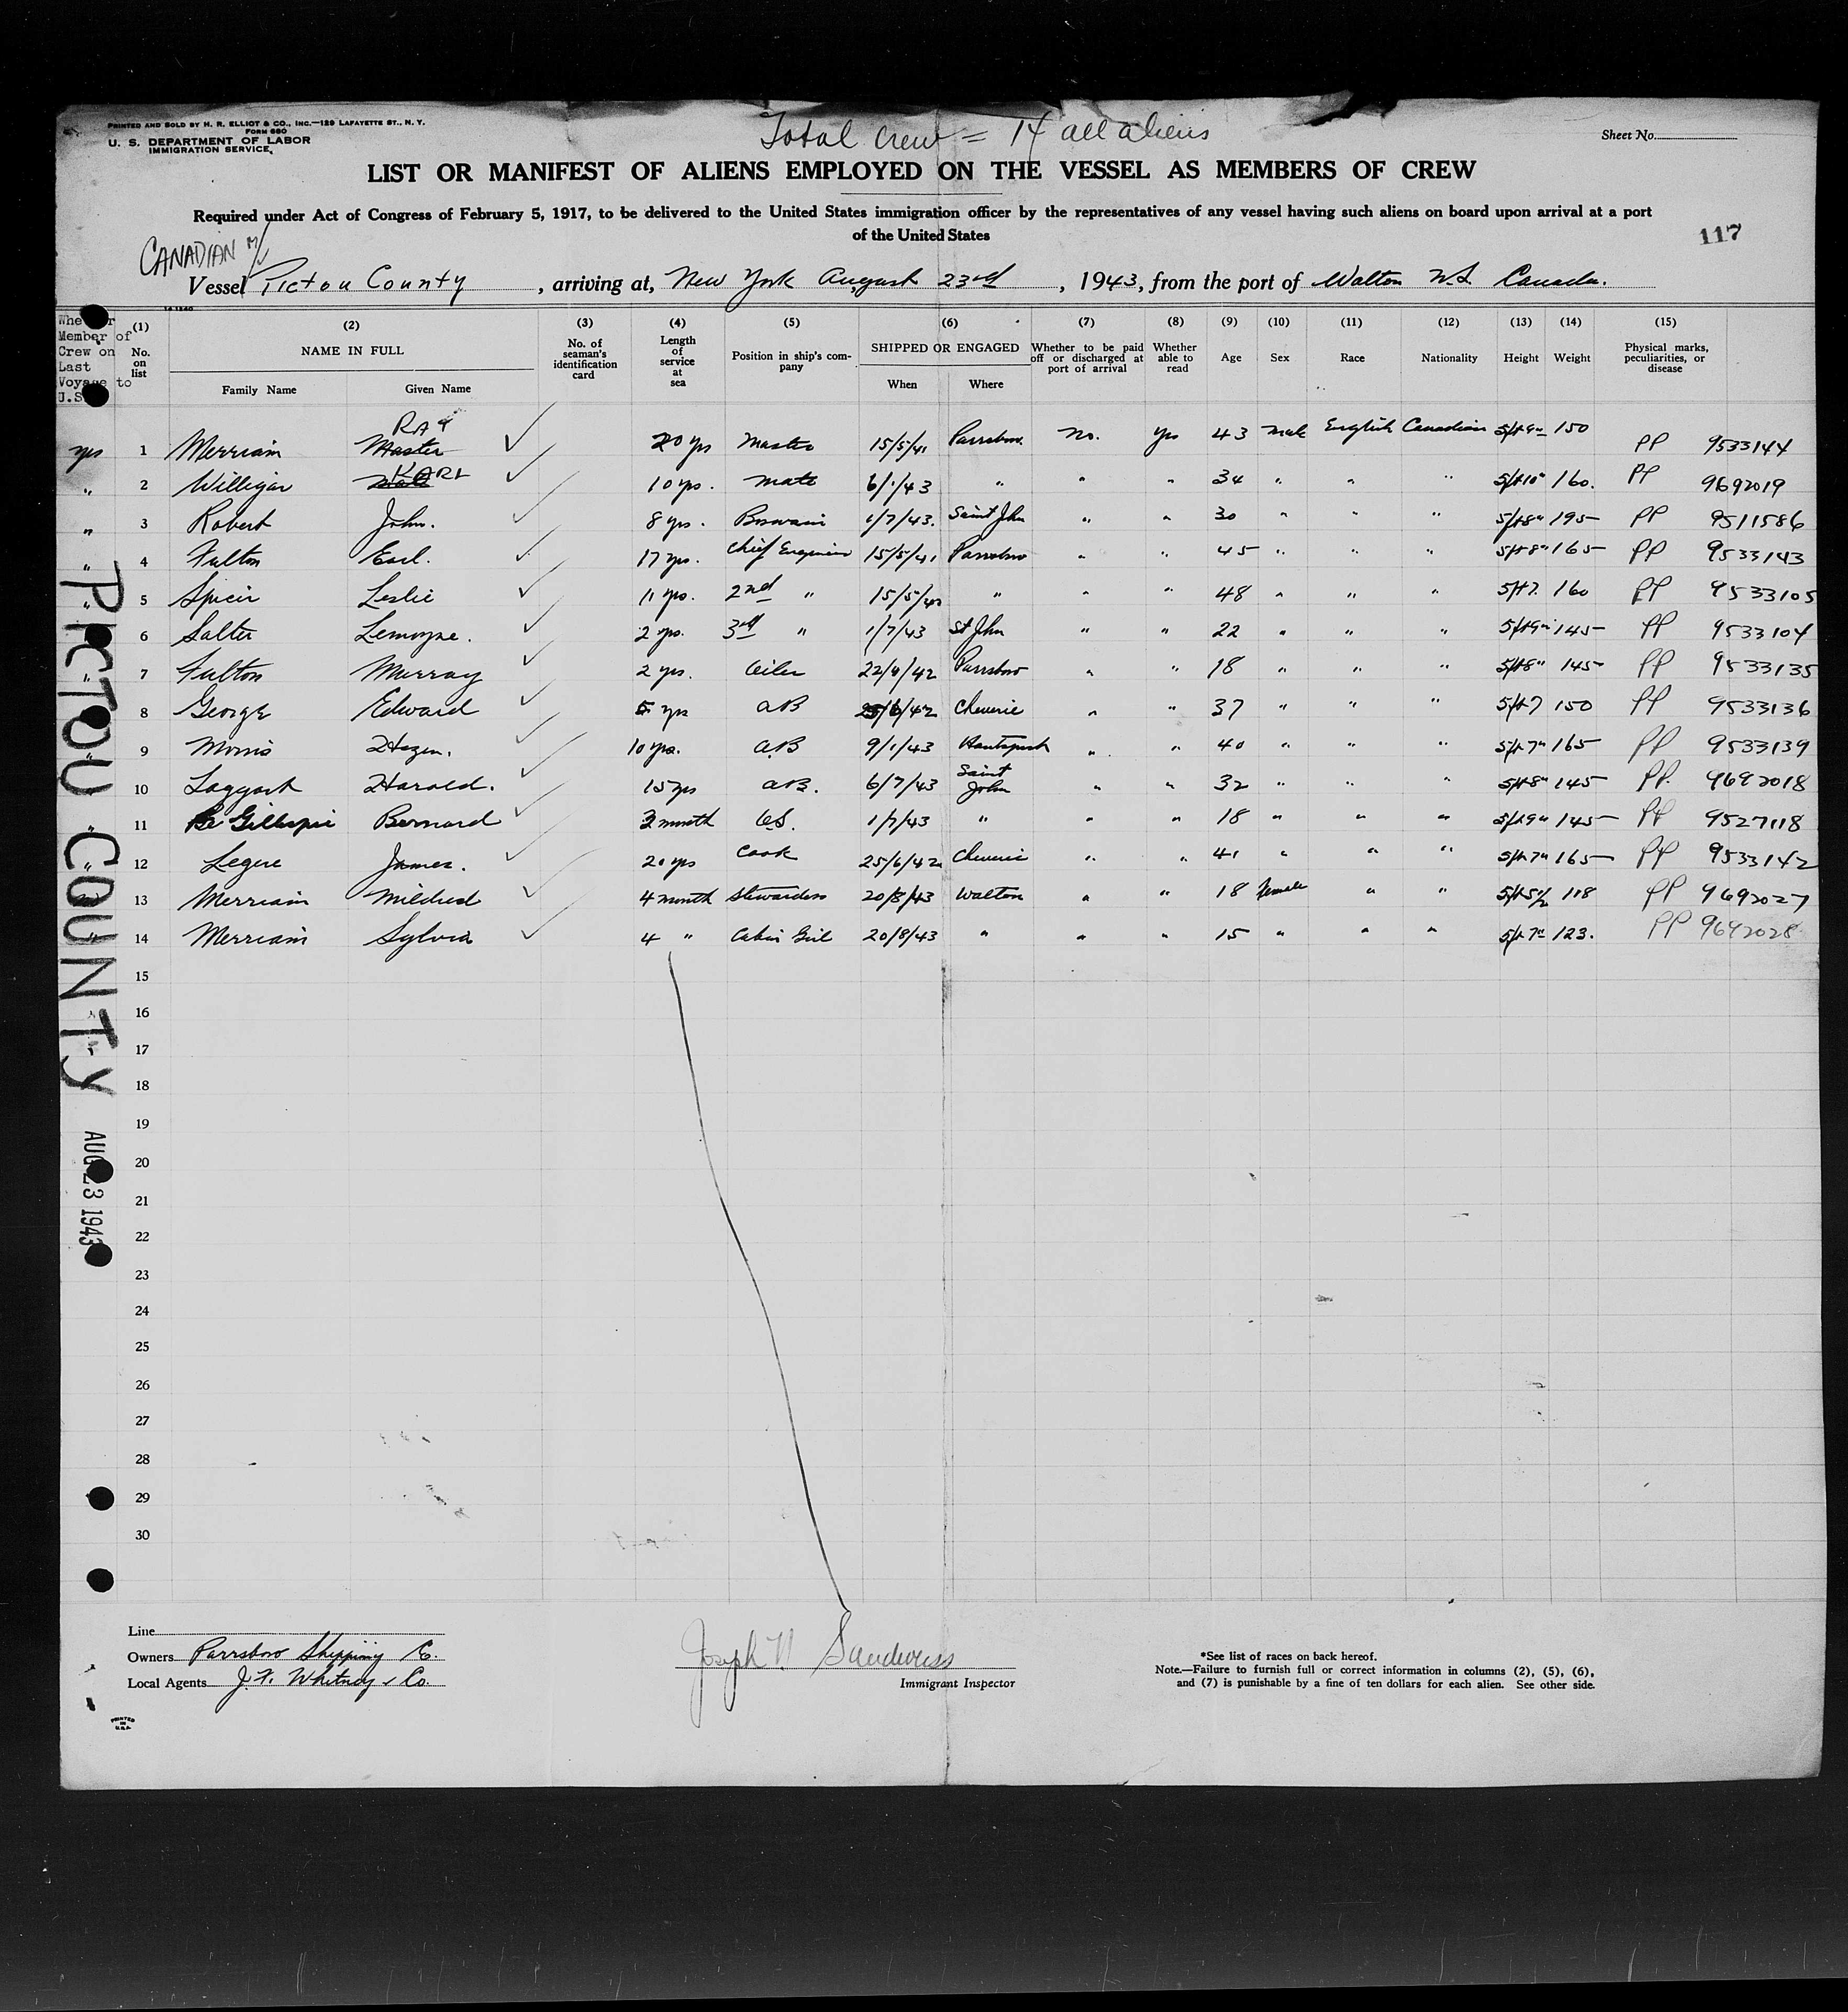 PRINTED AND SOLD BY H. R. ELLIOT & CO., INC.—129 LAFAYETTE ST., N. Y.
FORM 680
U. S. DEPARTMENT OF LABOR
IMMIGRATION SERVICE
Total crew = 14 all aliens
Sheet No.
LIST OR MANIFEST OF ALIENS EMPLOYED ON THE VESSEL AS MEMBERS OF CREW
Required under Act of Congress of February 5, 1917, to be delivered to the United States immigration officer by the representatives of any vessel having such aliens on board upon arrival at a port
of the United States
117
CANADIAN M/V
Vessel Pictou County, arriving at, New York August 23rd, 1943, from the port of Walton N.S. Canada.
Whether Member of Crew on Last Voyage to U.S.
(1) No. on list
(2) NAME IN FULL Family Name Given Name
(3) No. of seaman's identification card
(4) Length of service at sea
(5) Position in ship's company
(6) SHIPPED OR ENGAGED When Where
(7) Whether to be paid off or discharged at port of arrival
(8) Whether able to read
(9) Age
(10) Sex
(11) Race
(12) Nationality
(13) Height
(14) Weight
(15) Physical marks, peculiarities, or disease
yes 1 Merriam Master RAY 20 yrs Master 15/5/41 Parrsboro No. yes 43 male English Canadian 5ft9" 150 PP 9533144
" 2 Willigar KARL 10 yrs. mate 6/1/43 " " " 34 " " " 5ft10" 160. PP 9692019
" 3 Robert John. 8 yrs. Boswain 1/7/43. Saint John " " 30 " " " 5ft8" 195 PP 9511586
" 4 Fulton Earl. 17 yrs. Chief Engineer 15/5/41 Parrsboro " " 45 " " " 5ft8" 165 PP 9533143
" 5 Spicer Leslie 11 yrs. 2nd " 15/5/41 " " " 48 " " " 5ft7. 160 PP 9533105
" 6 Salter Lemoyne. 2 yrs. 3rd " 1/7/43 St John " " 22 " " " 5ft9" 145 PP 9533104
" 7 Fulton Murray 2 yrs. Oiler 22/4/42 Parrsboro " " 18 " " " 5ft8" 145 PP 9533135
" 8 George Edward 5 yrs AB 25/6/42 Cheverie " " 37 " " " 5ft7 150 PP 9533136
" 9 Morris Hazen. 10 yrs. AB 9/1/43 Hantsport " " 40 " " " 5ft7" 165 PP 9533139
" 10 Taggart Harold. 15 yrs AB. 6/7/43 Saint John " " 32 " " " 5ft8" 145 PP. 9692018
" 11 Gillespie Bernard 3 month O.S. 1/7/43 " " " 18 " " " 5ft9" 145 PP 9527118
" 12 Legere James. 20 yrs Cook 25/6/42 Cheverie " " 41 " " " 5ft7" 165 PP 9533142
" 13 Merriam Mildred 4 month Stewardess 20/8/43 Walton " " 18 Female " " 5ft5½ 118 PP 9692027
" 14 Merriam Sylvia 4 " Cabin Girl 20/8/43 " " " 15 " " " 5ft7" 123. PP 9692028
15
16
17
18
19
20
21
22
23
24
25
26
27
28
29
30
PICTOU COUNTY
AUG 23 1943
Line
Owners Parrsboro Shipping Co.
Local Agents J. F. Whitney & Co.
Joseph Sandweiss
Immigrant Inspector
*See list of races on back hereof.
Note.—Failure to furnish full or correct information in columns (2), (5), (6),
and (7) is punishable by a fine of ten dollars for each alien. See other side.
PRINTED
IN
U.S.A.